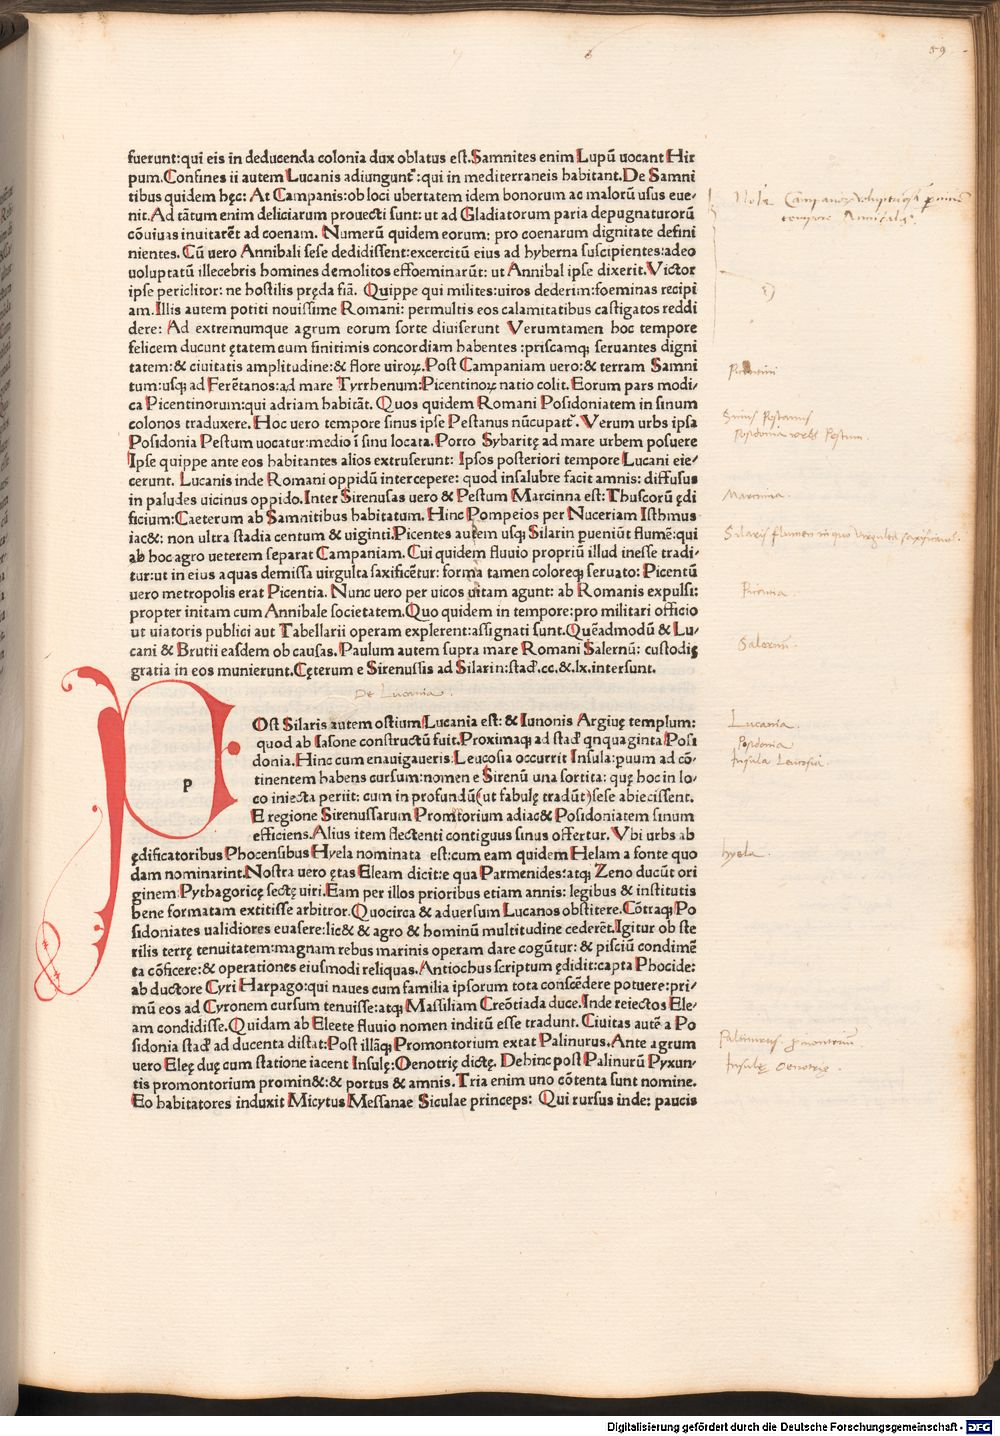 89
fuerunt:qui eis in deducenda colonia dux oblatus est.Samnites enim Lupū uocant Hir
pum.Confines ii autem Lucanis adiungunt᷑:qui in mediterraneis habitant.De Samni
tibus quidem hęc: At Campanis:ob loci ubertatem idem bonorum ac malorū usus eue-
nit.Ad tātum enim deliciarum prouecti sunt: ut ad Gladiatorum paria depugnaturorū
cōuiuas inuitarēt ad coenam. Numerū quidem eorum: pro coenarum dignitate defini
nientes. Cū uero Annibali sese dedidissent:excercitū eius ad hyberna suscipientes:adeo
uoluptatū illecebris homines demolitos effoeminarūt: ut Annibal ipse dixerit.Victor
ipse periclitor: ne hostilis pręda fiā. Quippe qui milites:uiros dederim:foeminas recipi
am.Illis autem potiti nouissime Romani: permultis eos calamitatibus castigatos reddi
dere: Ad extremumque agrum eorum sorte diuiserunt Verumtamen hoc tempore
felicem ducunt ętatem cum finitimis concordiam habentes :priscamqꝫ seruantes digni
tatem:& ciuitatis amplitudine:& flore uiroꝝ.Post Campaniam uero:& terram Samni
tum:usqꝫ ad Ferētanos:ad mare Tyrrhenum:Picentinoꝝ natio colit. Eorum pars modi-
ca Picentinorum:qui adriam habitāt. Quos quidem Romani Posidoniatem in sinum
colonos traduxere. Hoc uero tempore sinus ipse Pestanus nūcupat᷑. Verum urbs ipsa
Posidonia Pestum uocatur:medio ī sinu locata. Porro Sybaritę ad mare urbem posuere
Ipse quippe ante eos habitantes alios extruserunt: Ipsos posteriori tempore Lucani eie-
cerunt. Lucanis inde Romani oppidū intercepere: quod insalubre facit amnis: diffusus
in paludes uicinus oppido.Inter Sirenusas uero & Pestum Marcinna est: Thuscorū ędi
ficium:Caeterum ab Samnitibus habitatum. Hinc Pompeios per Nuceriam Isthmus
iac&: non ultra stadia centum & uiginti.Picentes autem usqꝫ Silarin pueniūt flumē:qui
ab hoc agro ueterem separat Campaniam. Cui quidem fluuio propriū illud inesse tradi-
tur:ut in eius aquas demissa uirgulta saxificētur: forma tamen coloreqꝫ seruato: Picentū
uero metropolis erat Picentia. Nunc uero per uicos uitam agunt: ab Romanis expulsi:
propter initam cum Annibale societatem.Quo quidem in tempore:pro militari officio
ut uiatoris publici aut Tabellarii operam explerent:assignati sunt.Quēadmodū & Lu-
cani & Brutii easdem ob causas. Paulum autem supra mare Romani Salernū: custodię
gratia in eos munierunt.Cęterum e Sirenussis ad Silarin:stad.cc.&.lx.intersunt.
De Lucania.
p
Ost Silaris autem ostium Lucania est: & Iunonis Argiuę templum:
quod ab Iasone constructū fuit.Proximaqꝫ ad stad qnquaginta Posi
donia. Hinc cum enauigaueris Leucosia occurrit Insula:puum ad cō-
tinentem habens cursum:nomen e Sirenū una sortita: quę hoc in lo-
co iniecta periit: cum in profundū(ut fabulę tradūt)sese abiecissent.
E regione Sirenussarum Promtorium adiac& Posidoniatem sinum
efficiens.Alius item flectenti contiguus sinus offertur. Vbi urbs ab
ędificatoribus Phocensibus Hyela nominata est:cum eam quidem Helam a fonte quo
dam nominarint.Nostra uero ętas Eleam dicit:e qua Parmenides:atqꝫ Zeno ducūt ori
ginem:Pythagoricę sectę uiri.Eam per illos prioribus etiam annis: legibus & institutis
bene formatam extitisse arbitror.Quocirca & aduersum Lucanos obstitere.Cōtraqꝫ Po
sidoniates ualidiores euasere:lic& & agro & hominū multitudine cederēt.Igitur ob ste
rilis terrę tenuitatem:magnam rebus marinis operam dare cogūtur:& pisciū condimē
ta cōficere:& operationes eiusmodi reliquas.Antiochus scriptum ędidit:capta Phocide:
ab ductore Cyri Harpago:qui naues cum familia ipsorum tota conscēdere potuere:pri-
mū eos ad Cyronem cursum tenuisse:atqꝫ Massiliam Creōtiada duce.Inde reiectos Ele-
am condidisse.Quidam ab Eleete fluuio nomen inditū esse tradunt. Ciuitas autē a Po
sidonia stad ad ducenta distat:Post illāqꝫ Promontorium extat Palinurus.Ante agrum
uero Eleę duę cum statione iacent Insulę:Oenotrię dictę. Dehinc post Palinurū Pyxun-
tis promontorium promin&:& portus & amnis. Tria enim uno cōtenta sunt nomine.
Eo habitatores induxit Micytus Messanae Siculae princeps: Qui rursus inde: paucis
Nola Campanoꝝ
tempore Annibalis
Picentini
Sinus Pestanus
Posidonia urbs Pestum.
Marcinna.
Silaris flumen in quo virgulta
Picentia.
Salernū.
Lucania.
Posidonia
Insula Leucosia.
hyela.
Palinurus. promontoriū.
Insulę Oenotrię.
Digitalisierung gefördert durch die Deutsche Forschungsgemeinschaft - DFG